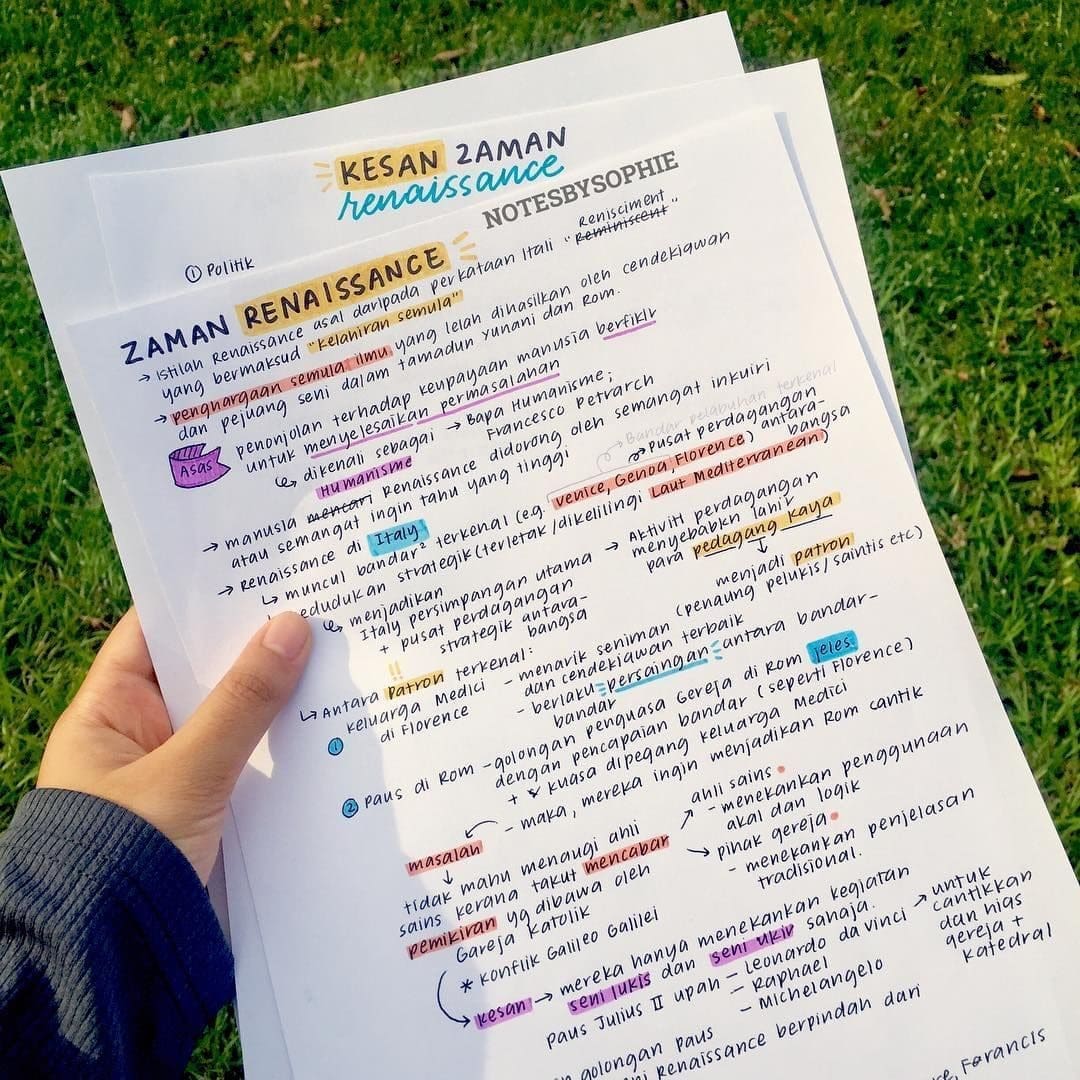 KESAN ZAMAN
renaissance
NOTESBYSOPHIE
① Politik
ZAMAN RENAISSANCE
→ Istilah Renaissance asal daripada perkataan Itali "Reminiscent Renisciment"
yang bermaksud "kelahiran semula"
→ penghargaan semula ilmu yang lelah dihasilkan oleh cendekiawan
dan pejuang seni dalam tamadun Yunani dan Rom.
Asas
penonjolan terhadap keupayaan manusia berfikir
untuk menyelesaikan permasalahan
↳ dikenali sebagai → Bapa Humanisme;
Humanisme
Francesco Petrarch
→ manusia mencari Renaissance didorong oleh semangat inkuiri
atau semangat ingin tahu yang tinggi
Bandar pelabuhan terkenal
→ Renaissance di Italy
pusat perdagangan
↳ muncul bandar² terkenal (e.g. Venice, Genoa, Florence) antara-
bangsa
kedudukan strategik (terletak/dikelilingi Laut Mediterranean)
↳ menjadikan
Italy persimpangan utama
+ pusat perdagangan
strategik antara-
bangsa
→ Aktiviti perdagangan
menyebabkn lahir
para pedagang kaya
↓
menjadi patron
(penaung pelukis/saintis etc)
!!
↳ Antara Patron terkenal:
① keluarga Medici
di Florence
- menarik seniman
dan cendekiawan terbaik
- berlaku persaingan antara bandar-
bandar
② Paus di Rom - golongan penguasa Gereja di Rom jeles
dengan pencapaian bandar (seperti Florence)
+ kuasa dipegang keluarga Medici
- maka, mereka ingin menjadikan Rom cantik
masalah
↓
tidak mahu menaugi ahli
sains kerana takut mencabar
pemikiran yg dibawa oleh
Gareja Katolik
* konflik Galileo Galilei
ahli sains
- menekankan penggunaan
akal dan logik
→ pihak gereja
- menekankan penjelasan
tradisional.
kesan → mereka hanya menekankan kegiatan
seni lukis dan seni ukir sahaja.
Paus Julius II upah - Leonardo da Vinci
- Raphael
- Michelangelo
→ untuk
cantikkan
dan hias
gereja +
katedral
golongan paus
Renaissance berpindah dari
Farancis